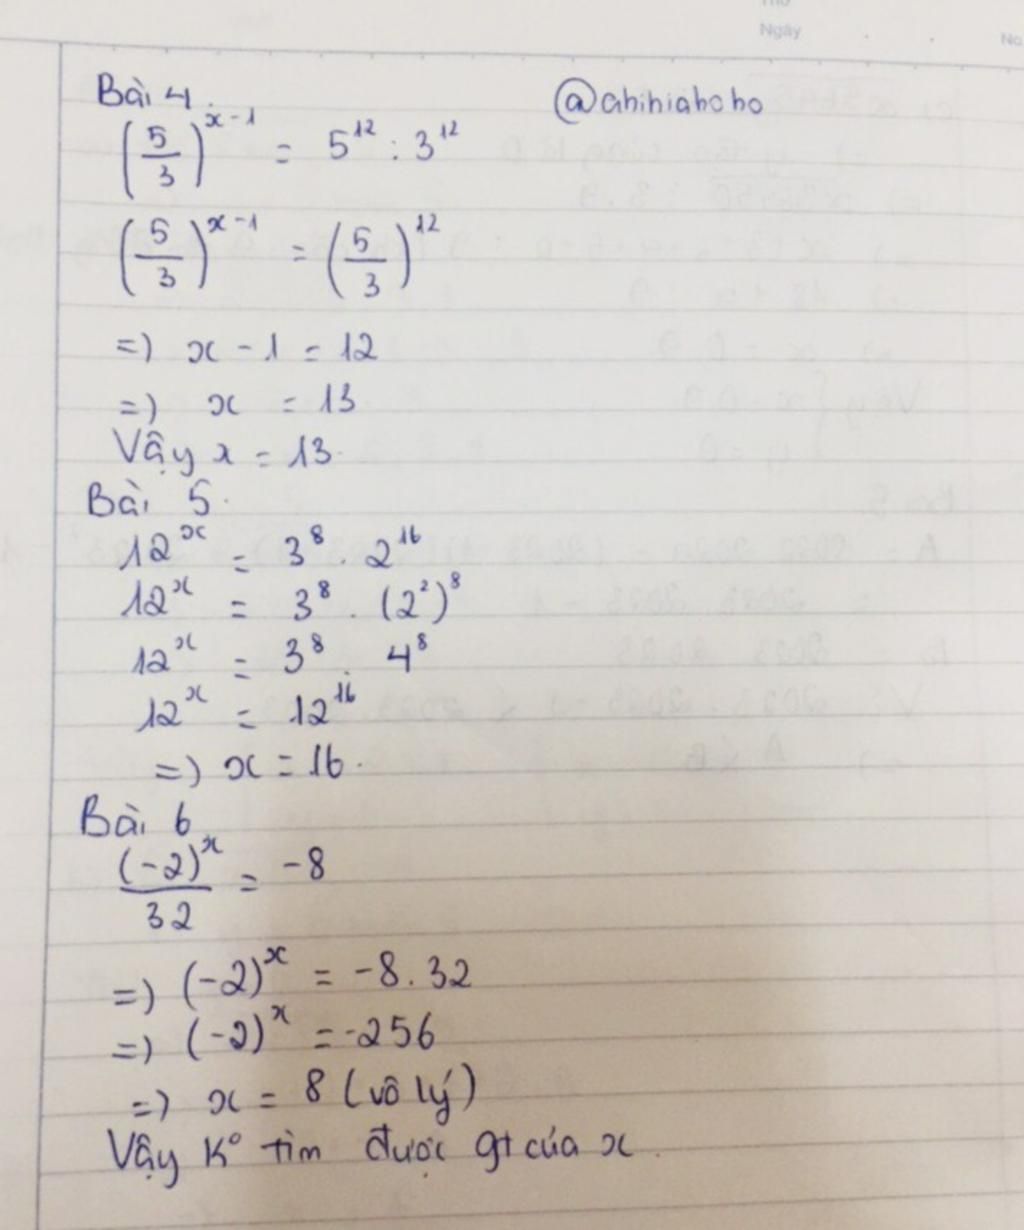 Thứ
Ngày
No
Bài 4. @ahihiahoho
(5/3)^(x-1) = 5^12 : 3^12
(5/3)^(x-1) = (5/3)^12
=) x - 1 = 12
=) x = 13
Vậy x = 13.
Bài 5.
12^x = 3^8 . 2^16
12^x = 3^8 . (2^2)^8
12^x = 3^8 . 4^8
12^x = 12^16
=) x = 16.
Bài 6
(-2)^x/32 = -8
=) (-2)^x = -8.32
=) (-2)^x = -256
=) x = 8 (vô lý)
Vậy K° tìm được gt của x.